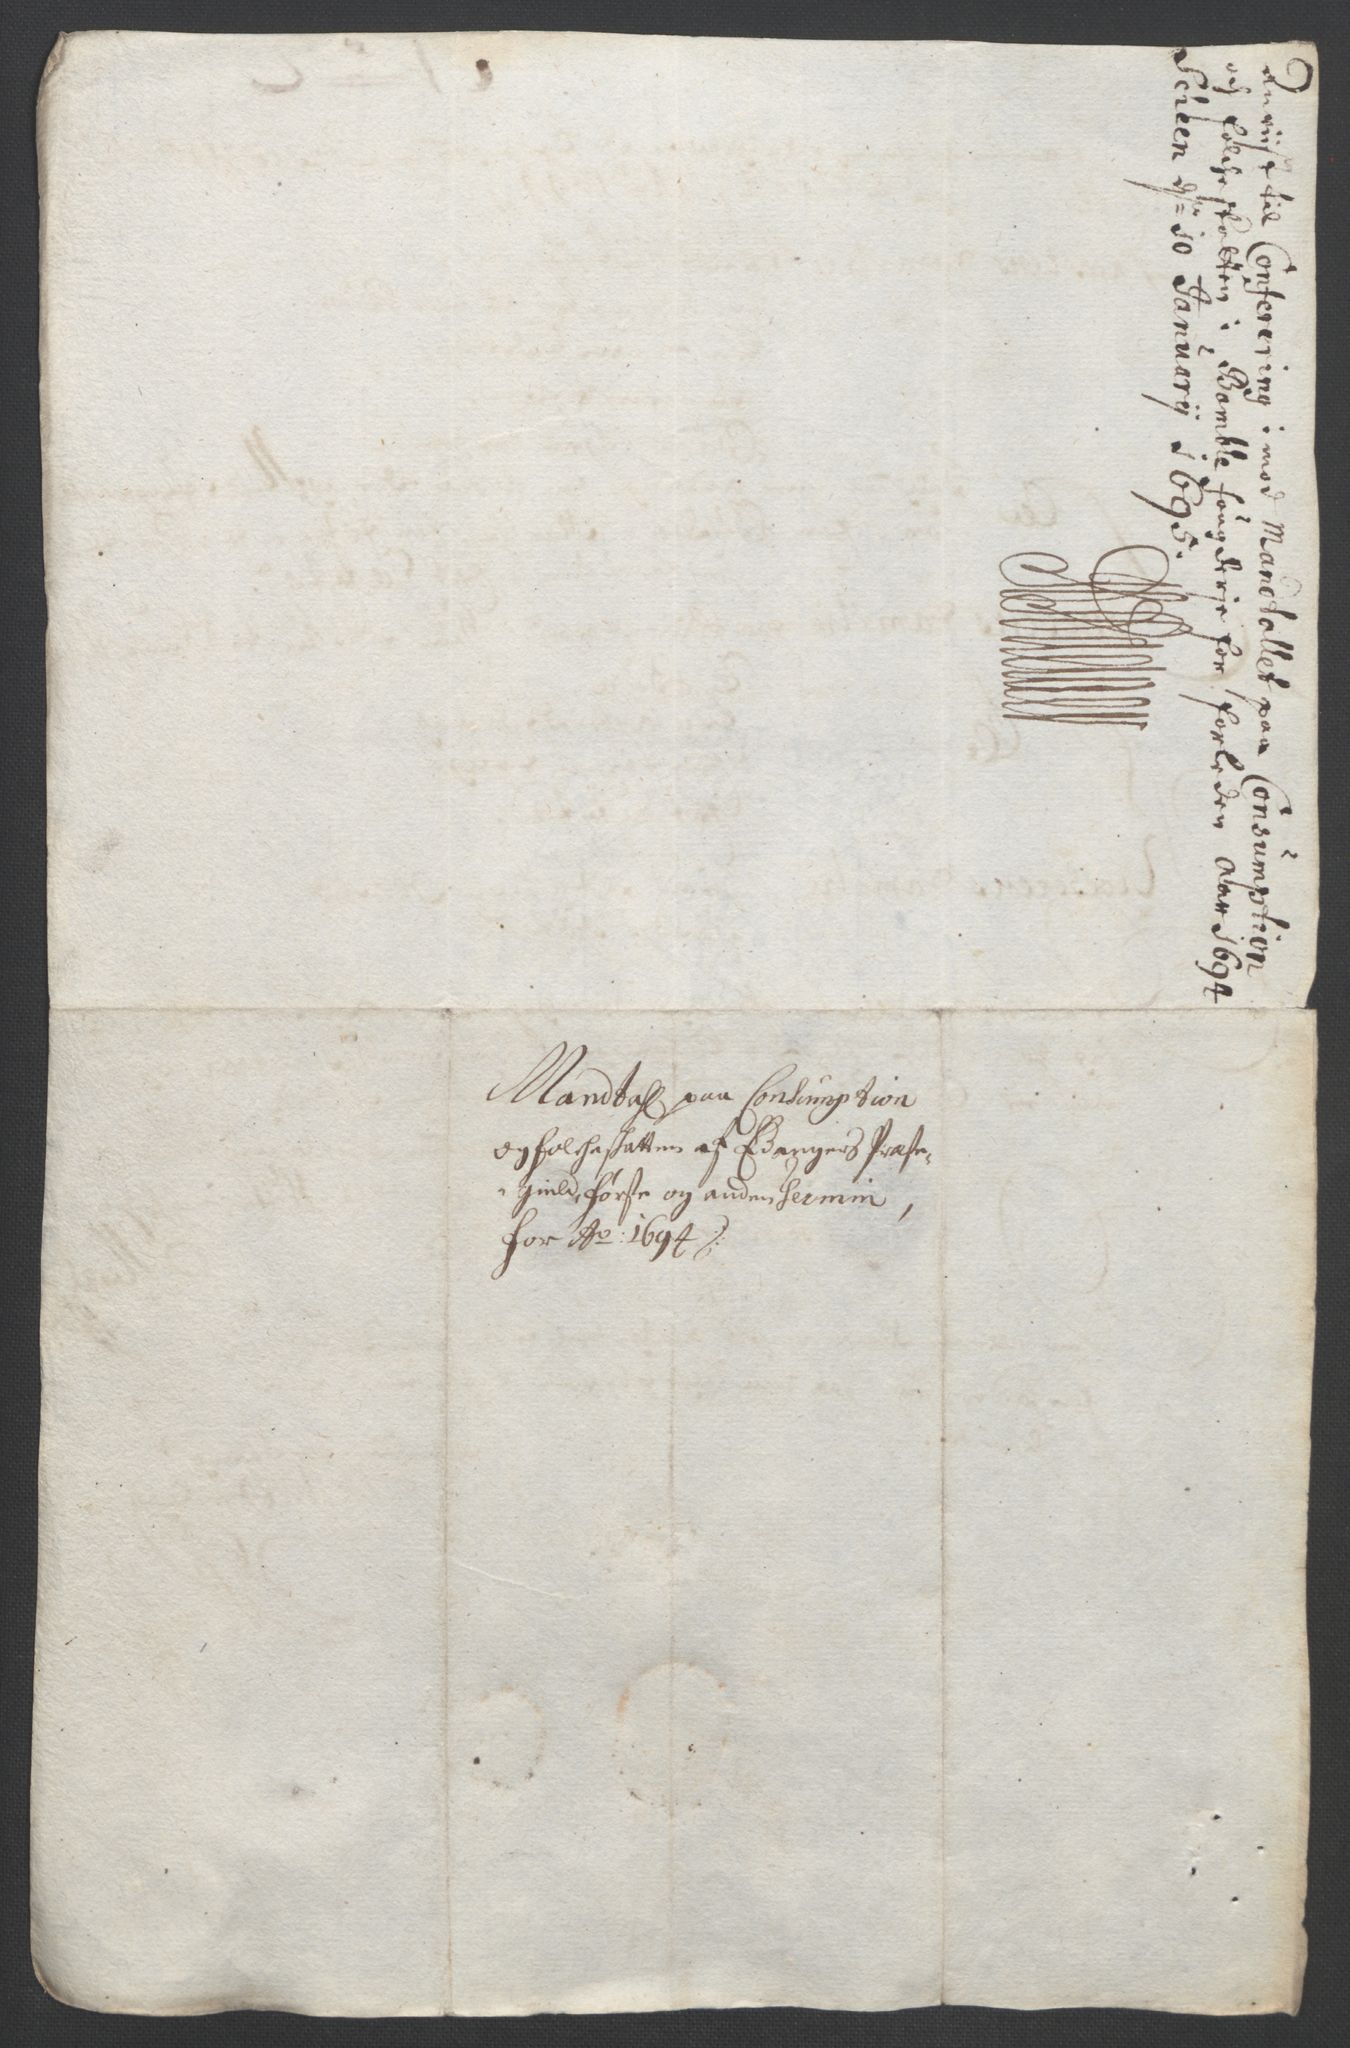 Anviist til Conferering imod Mandtallet paa Consumption
och folcheskatten i Bamble fougderje for forleden Aar 1694
Scheen dend 10 Januarij 1695.
Mandtall paa Consumption
og folcheskatten af Ebangers Præste,
gield, første og anden Termin,
for Ao: 1694